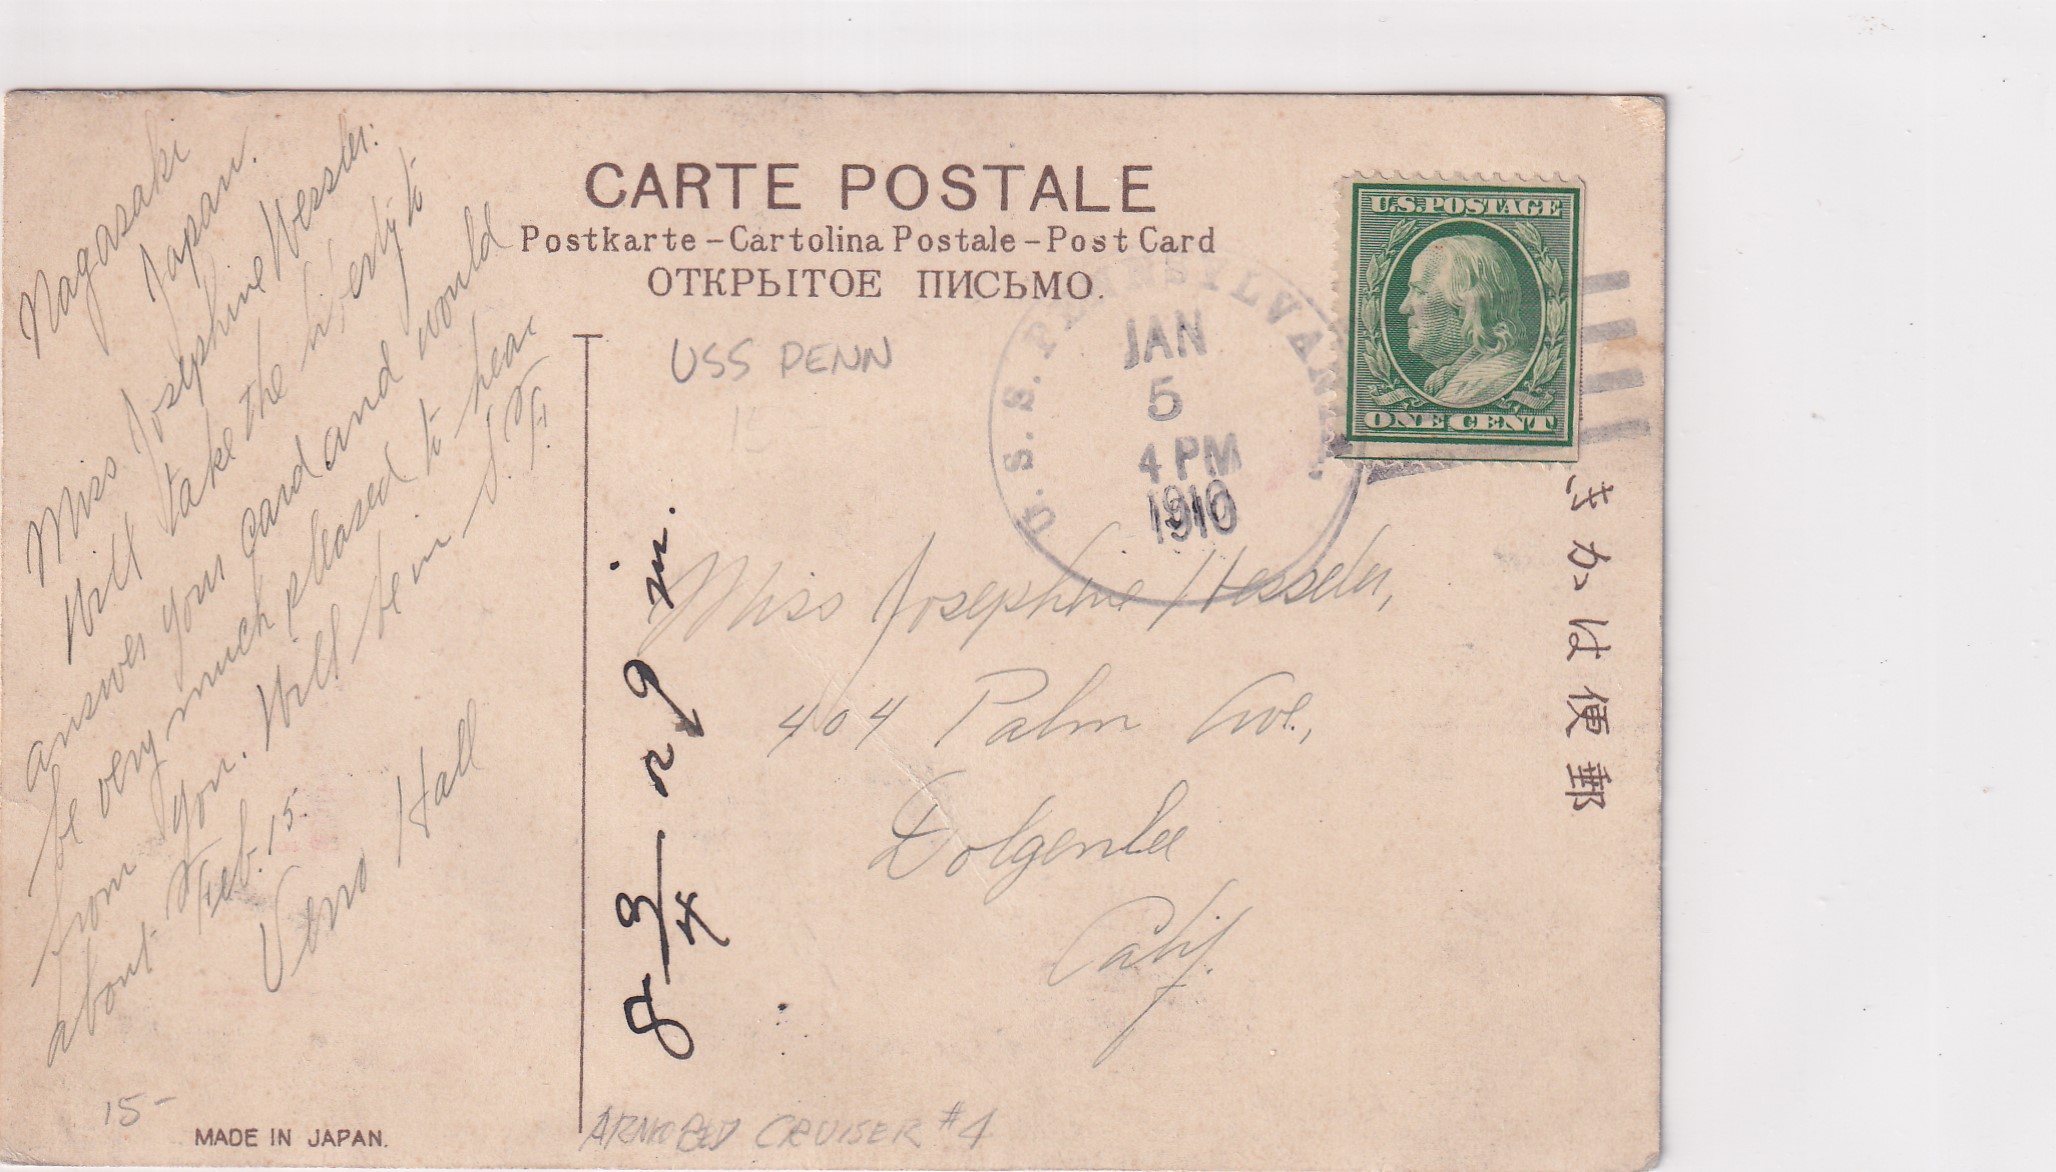 Nagasaki
Japan.
Miss Josephine Hessler:
Will take the liberty to
answer your card and would
be very much pleased to hear
from you. Will be in S.F.
about Feb. 15.
Hall
15-
MADE IN JAPAN.
CARTE POSTALE
Postkarte – Cartolina Postale – Post Card
ОТКРЫТОЕ ПИСЬМО.
USS PENN
U.S.S. PENNSYLVANIA.
JAN
5
4 PM
1910
U.S. POSTAGE
ONE CENT
Miss Josephine Hessler,
404 Palm Ave.,
Calif.
8 3/4
in.
郵便はかき
ARMORED CRUISER #4